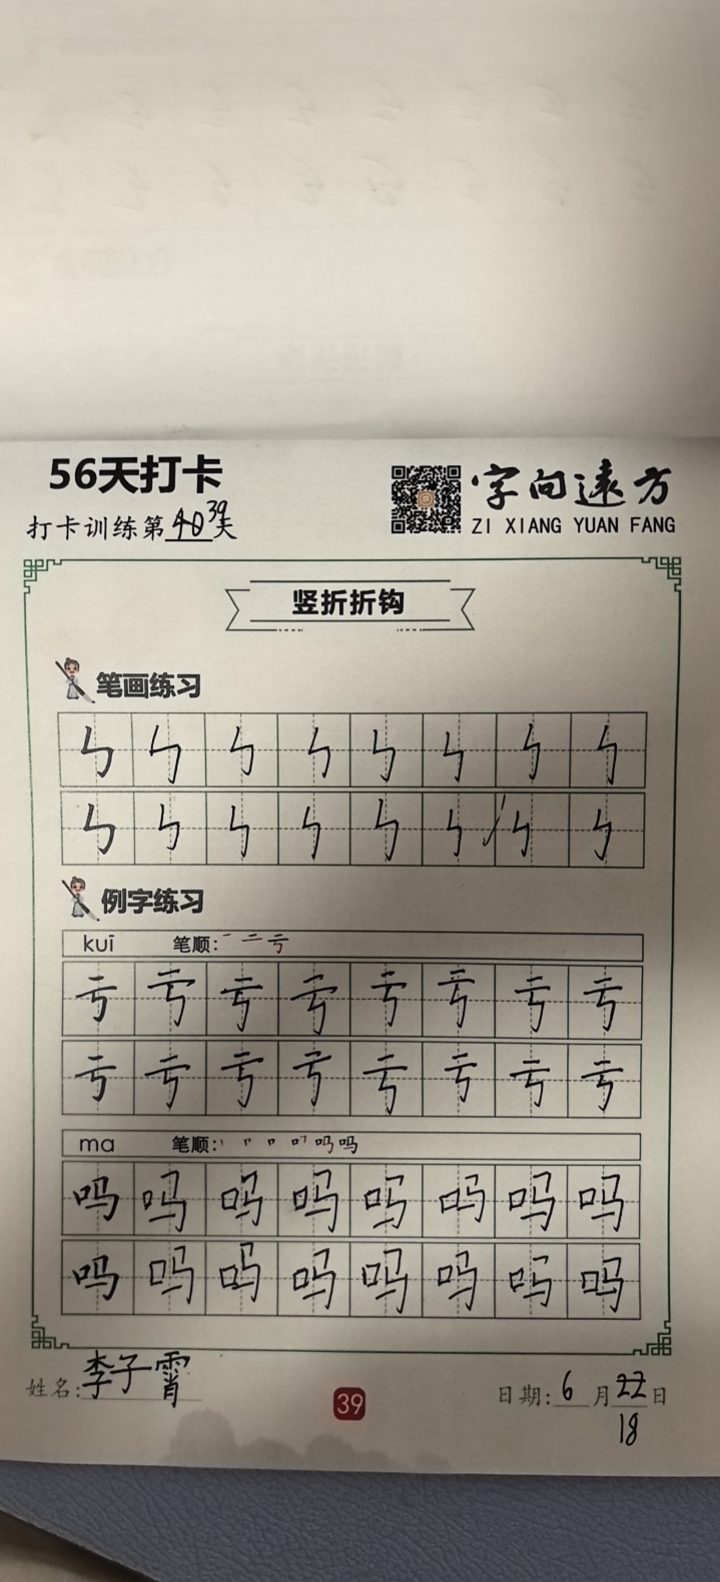 56天打卡
字向远方
打卡训练第40 39天
ZI XIANG YUAN FANG
竖折折钩
笔画练习
ㄣㄣㄣㄣㄣㄣㄣㄣ
ㄣㄣㄣㄣㄣㄣㄣㄣ
例字练习
kuī 笔顺：一 二 亏
亏亏亏亏亏亏亏亏
亏亏亏亏亏亏亏亏
ma 笔顺：丨 ㄇ 口 吗 吗
吗吗吗吗吗吗吗吗
吗吗吗吗吗吗吗吗
姓名：李子霄
39
日期：6月22日
18